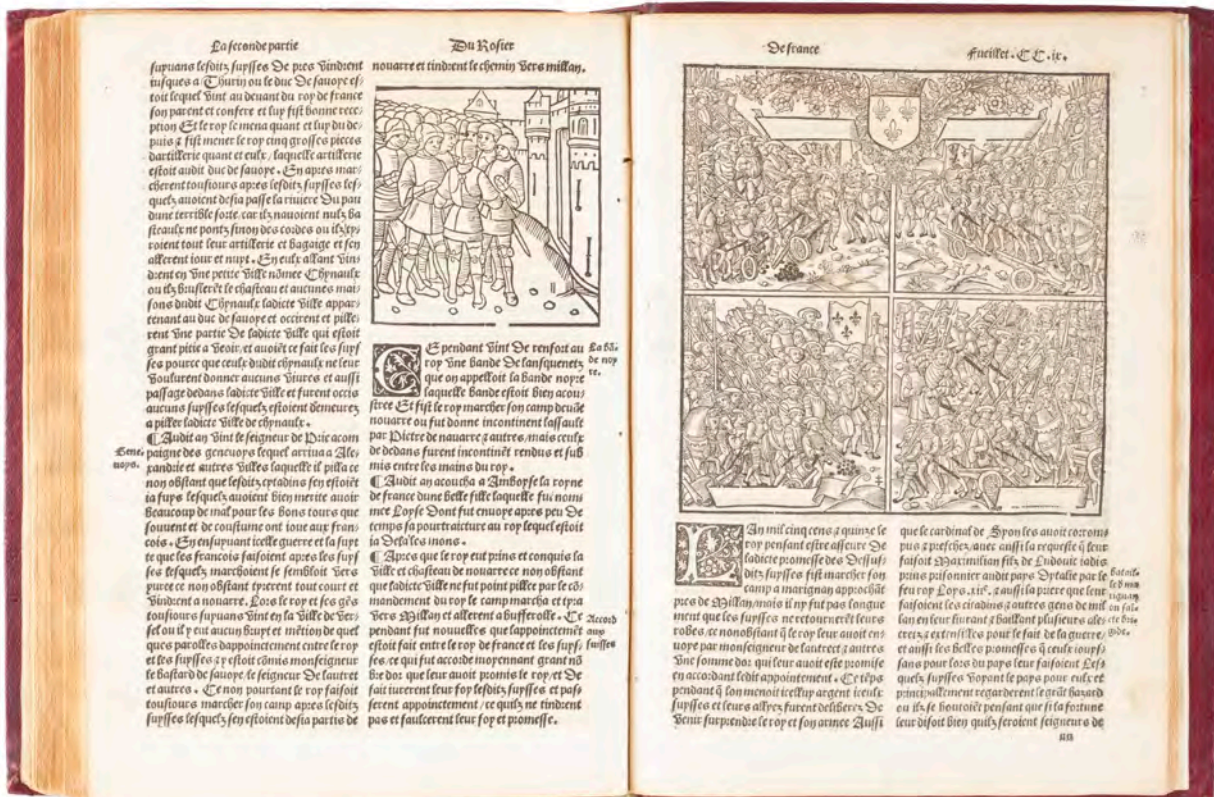 La seconde partie
suyuans lesditz suysses De pres vindrent
iusques a Thurin ou le duc De sauoye es/
toit lequel vint au deuant du roy de france
son parent et confere et luy fist bonne rece/
ption Et le roy le mena quant et luy du de/
puis & fist mener le roy cinq grosses pieces
dartillerie quant et eulx / laquelle artillerie
estoit audit duc de sauoye. En apres mar/
cherent tousiours apres lesditz suysses les/
quelz auoient desia passe la riuiere Du pau
dune terrible sorte. car ilz nauoient nulz ba
steaulx ne pontz sinon des cordes ou ilz ty/
roient tout leur artillerie et bagaige et sen
allerent iour et nuyt. En eulx allant vin/
drent en vne petite ville nõmee Chynaulx
ou ilz bruslerẽt le chasteau et aucunes mai/
sons dudit Chynaulx ladicte ville appar/
tenant au duc de sauoye et occirent et pille/
rent vne partie De ladicte ville qui estoit
grant pitie a veoir / et auoiẽt ce fait les suys/
ses pource que ceulx dudit chynaulx ne leur
voulurent donner aucuns viures et aussi
passage dedans ladicte ville et furent occis
aucuns suysses lesquelz estoient demeurez
a piller ladicte ville de chynaulx.
¶ Audit an vint le seigneur de Prie acom
paigne des geneuoys lequel arriua a Ale/
xandrie et autres villes laquelle il pilla ce
non obstant que lesditz cytadins sen estoiẽt
ia fuys lesquelz auoient bien merite auoir
beaucoup de mal pour les bons tours que
souuent et de coustume ont ioue aux fran/
cois. En ensuyuant icelle guerre et la suyt
te que les francois faisoient apres les suys/
ses lesquelz marchoient se sembloit vers
yuree ce non obstant tyrerent tout court et
vindrent a nouarre. Lors le roy et ses gẽs
tousiours suyuans vint en la ville de ver/
sel ou il y eut aucun bruyt et mẽtion de quel
ques parolles dappoinctement entre le roy
et les suysses & y estoit cõmis monseigneur
le bastard de sauoye. le seigneur De lautret
et autres. Ce non pourtant le roy faisoit
tousiours marcher son camp apres lesditz
suysses lesquelz sen estoient desia partis de
Gene/
uoys.
Du Rosier
nouarre et tindrent le chemin vers millan.
CEpendant vint De renfort au
roy vne bande De lansquenetz
que on appelloit la bande noyre
laquelle bande estoit bien acou/
stree Et fist le roy marcher son camp deuãt
nouarre ou fut donne incontinent lassault
par Pietre de nauarre & autres / mais ceulx
de dedans furent incontinẽt rendus et sub
mis entre les mains du roy.
¶ Audit an acoucha a Amboyse la royne
de france dune belle fille laquelle fut nom/
mee Loyse Dont fut enuoye apres peu De
temps sa pourtraicture au roy lequel estoit
ia Dela les mons.
¶ Apres que le roy eut prins et conquis la
ville et chasteau de nouarre ce non obstant
que ladicte ville ne fut point pillee par le cõ/
mandement du roy le camp marcha et tyra
vers Millan et allerent a bufferolle. Ce
pendant fut nouuelles que lappoinctemẽt
estoit fait entre le roy de france et les suys/
ses / ce qui fut accorde moyennant grant nõ
bre dor que leur auoit promis le roy / et De
fait iurerent leur foy lesditz suysses et pas/
serent appointement / ce quilz ne tindrent
pas et faulcerent leur foy et promesse.
La bã/
de noy
re.
Accord
aux
suisses
De france
Fueillet. CC. ix.
LAn mil cinq cens & quinze le
roy pensant estre asseure De
ladicte promesse des Dessus/
ditz suysses fist marcher son
camp a marignan approchãt
pres de Millan / mais il ny fut pas longue
ment que les suysses ne retournerẽt leurs
robes / ce nonobstãt q̃ le roy leur auoit en/
uoye par monseigneur de lautrect & autres
vne somme dor qui leur auoit este promise
en accordant ledit appointement. Ce tẽps
pendant q̃ lon menoit icelluy argent iceulx
suysses et leurs allyez furent deliberez De
venir surprendre le roy et son armee Aussi
que le cardinal de Syon les auoit corrom/
pus & preschez / auec aussi la requeste q̃ leur
faisoit Maximilian filz de Ludouic iadis
prins prisonnier audit pays Dytalie par le
feu roy Loys. xii. & aussi la priere que leur
faisoient les citadins & autres gens de mil
lan en leur liurant & baillant plusieurs ale/
cretz & extensilles pour le fait de la guerre /
et aussi les belles promesses q̃ ceulx suys/
sans pour lors du pays leur faisoient Les/
quelz suysses voyant le pays pour eulx et
principallement regarderent le grãt hazard
ou ilz se boutoiẽt pensant que si la fortune
leur disoit bien quilz seroient seigneurs de
Batail/
le d'ma
rignan